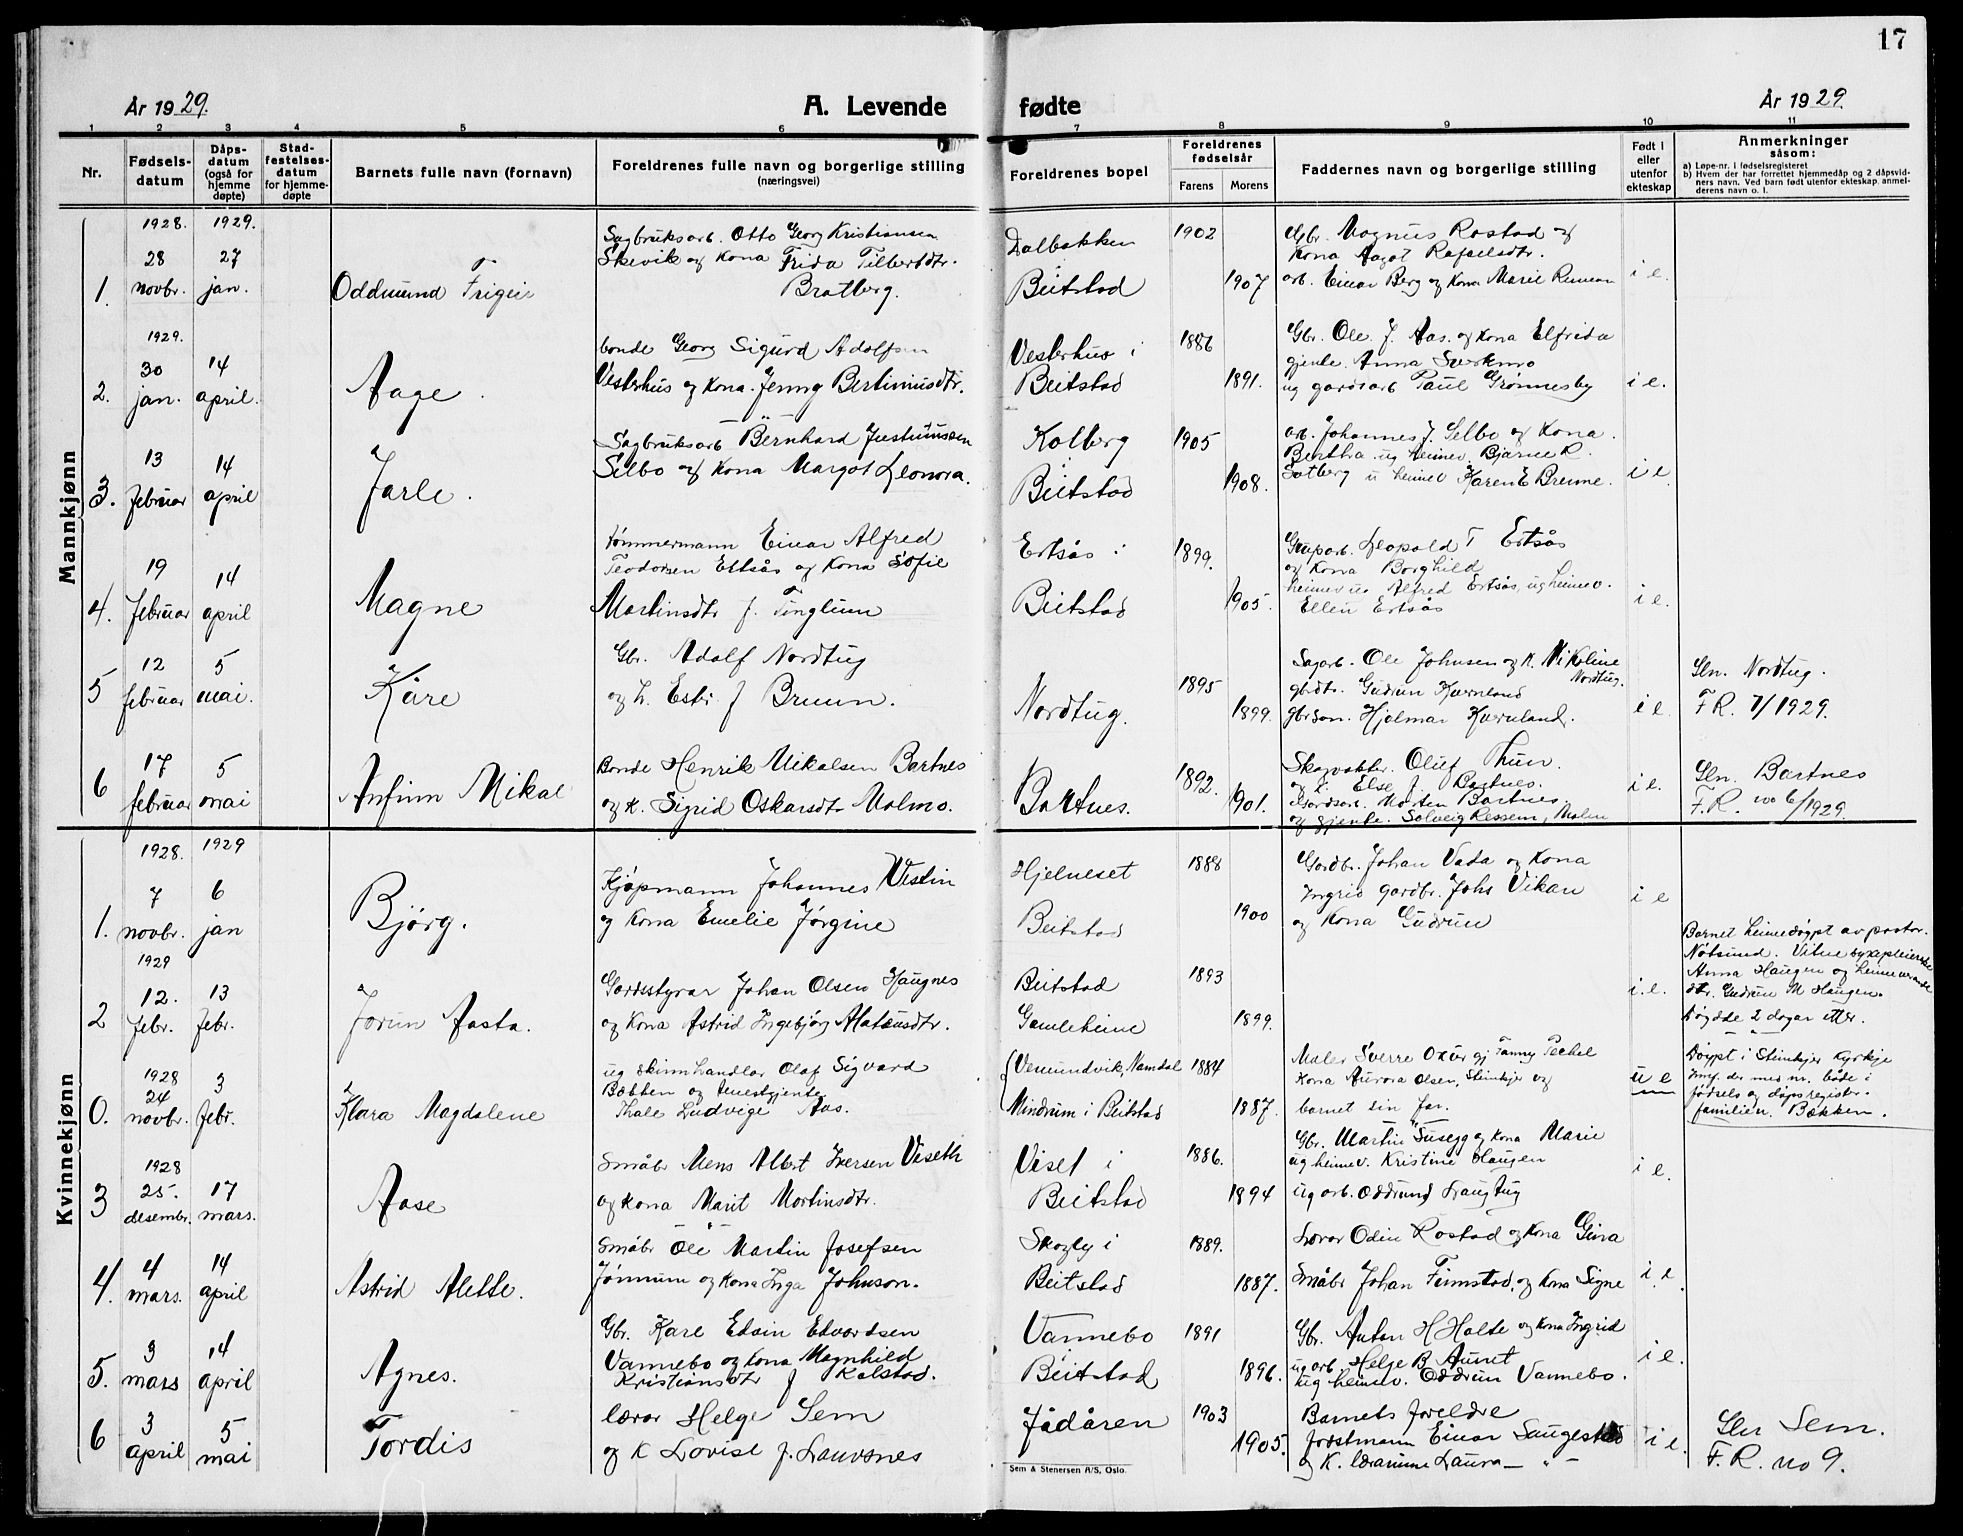 17
År 1929.
A. Levende fødte
År 1929
1 2 3 4 5 6 7 8 9 10 11
Nr.
Fødsels-
datum
Dåps-
datum
(også for
hjemme
døpte)
Stad-
festelses-
datum
for hjemme-
døpte
Barnets fulle navn (fornavn)
Foreldrenes fulle navn og borgerlige stilling
(næringsvei)
Foreldrenes bopel
Foreldrenes
fødselsår
Farens Morens
Faddernes navn og borgerlige stilling
Født i
eller
utenfor
ekteskap
Anmerkninger
såsom:
a) Løpe-nr. i fødselsregisteret
b) Hvem der har forrettet hjemmedåp og 2 dåpsvid-
ners navn. Ved barn født utenfor ekteskap anmel-
derens navn o. l.
Mannkjønn
1928. 1929.
28 27
1. novbr. jan.
Oddmund
Sagbruksarb. Otto Georg Kristiansen
Skevik og Kona Frida Tilbertdtr.
Bratberg.
Dalbakken
Beitstad
1902
1907
Gbr. Magnus Rostad og
Kona Aagot Rafaelsdtr.
arb. Einar Berg og Kona Marie
i e.
1929.
30 14
2. jan. april.
Aage.
bonde Georg Sigurd Adolfsen
Vesterhus og Kona Jenny Bertinusdtr.
Vesterhus i
Beitstad
1886
1891.
Gbr. Ole J. Aas. og Kona Elfrida
gjente. Anna
ug gardsarb Paul Grønnesby
i e.
13 14
3. februar april
Jarle.
Sagbruksarb Bernhard Justinussen
Selbo og Kona Margot Leonora.
Kolberg
Beitstad
1905
1908.
arb. Johannes J. Selbo og Kona.
Bertha. ug heimev. Bjarne R.
Solberg u heimev Karen E Breme.
i e.
19 14
4. februar april
Magne
tømmermann Einar Alfred
Teodorsen Ertsås og Kona Sofie
Martinsdtr f. Tinglum
Ertsås i
Beitstad
1899.
1905.
Leopold T Ertsås
og Kona Borghild
heimev ug Alfred Ertsås, ug heimev.
Ellen Ertsås
i e.
12 5
5 februar mai.
Kåre
Gbr. Adolf Nordtug
og h. Ester f Bruun.
Nordtug.
1895
1899.
Sagarb. Ole Johnsen og K. Nikoline
Nordtug.
gbdtr. Gudrun Kvernland
gbrson. Hjalmar Kvernland.
i e.
Sln. Nordtug.
F.R. 7/1929.
17 5
6 februar mai
Anfinn Mikal
Bonde Henrik Mikalsen Bartnes
og K. Sigrid Oskarsdt. Malmo.
Bartnes.
1892.
1901.
Skogvokter. Oluf Thun.
og K. Else J. Bartnes.
Morten Bartnes
og gjente. Solveig Ressem, Malm
i e.
Sln. Bartnes
F.R. no 6/1929.
Kvinnekjønn
1928. 1929
7 6
1. novbr. jan
Bjørg.
Kjøpmann Johannes Vestin
og Kona Emelie Jørgine
Hjelneset
Beitstad
1888
1900
Gardbr. Johan Vada og Kona
Ingrid gardbr. Johs Vikan
og Kona Gudrun
i e
1929
12. 13
2 febr. febr.
Jorun Aasta.
Gardsstyrar Johan Olsen Haugnes
og Kona Astrid Ingebjørg
Beitstad
Gamleheim
1893
1899.
i.e.
Barnet heimedøypt av pastor
Anna Haugen og heimeverande
dtr. Gudrun M Haugen.
Døydde 2 dagar etter.
1928
24 3
0. novbr. febr.
Klara Magdalene
ug skinnhandlar Olaf Sigvard
Bøkken og tenestgjente
Thale Ludvige Aas.
Vemundvik, Namdal
Mindrum i Beitstad
1884
1887.
Maler Sverre Oxur gj Fanny Pechel
Kona Aurora Olsen, Steinkjer og
barnet sin far.
u e
Døypt i Steinkjer Kyrkje
innf. der med nr. både i
fødsels og dåpsregistr.
familien. Bøkken.
1928
25. 17
3 desembr. mars.
Aase
Småbr Mens Albert Iversen Viseth
og Kona Marit Martinsdtr.
Viset i
Beitstad
1886.
1894
Gbr. Martin Susegg og Kona Marie
ug heimev. Kristine Haugen
ug arb. Oddmund Langtug
i e.
4 14
4. mars. april
Astrid Alette.
Småbr Ole Martin Josefsen
Jønnum og Kona Inga Johnson.
Skogly i
Beitstad
1889.
1887.
Lærar Odin Rostad og Kona Gina
Småbr Johan Finnstad, og Kona Signe
i e.
3 14
5. mars april
Agnes.
Gbr. Karl Edvin Edvardsen
Vannebo og Kona Magnhild
Kristiansdtr f Kalstad.
Vannebo
Beitstad
1891
1896.
Gbr. Anton H Holte og Kona Ingrid
ug arb. Helge B Aunet
ug heimev. Oddrun Vannebo.
i e.
3 5
6 april mai
Tordis
lærar Helge Sem
og K Lovise f. Lauvsnes
Fådåren
1903
1905.
Barnets foreldre
forstmann Einar Saugestad
og K. lærarinne Laura — " —
i e.
Sln Sem.
F.R. no 9.
Sem & Stenersen A/S, Oslo.